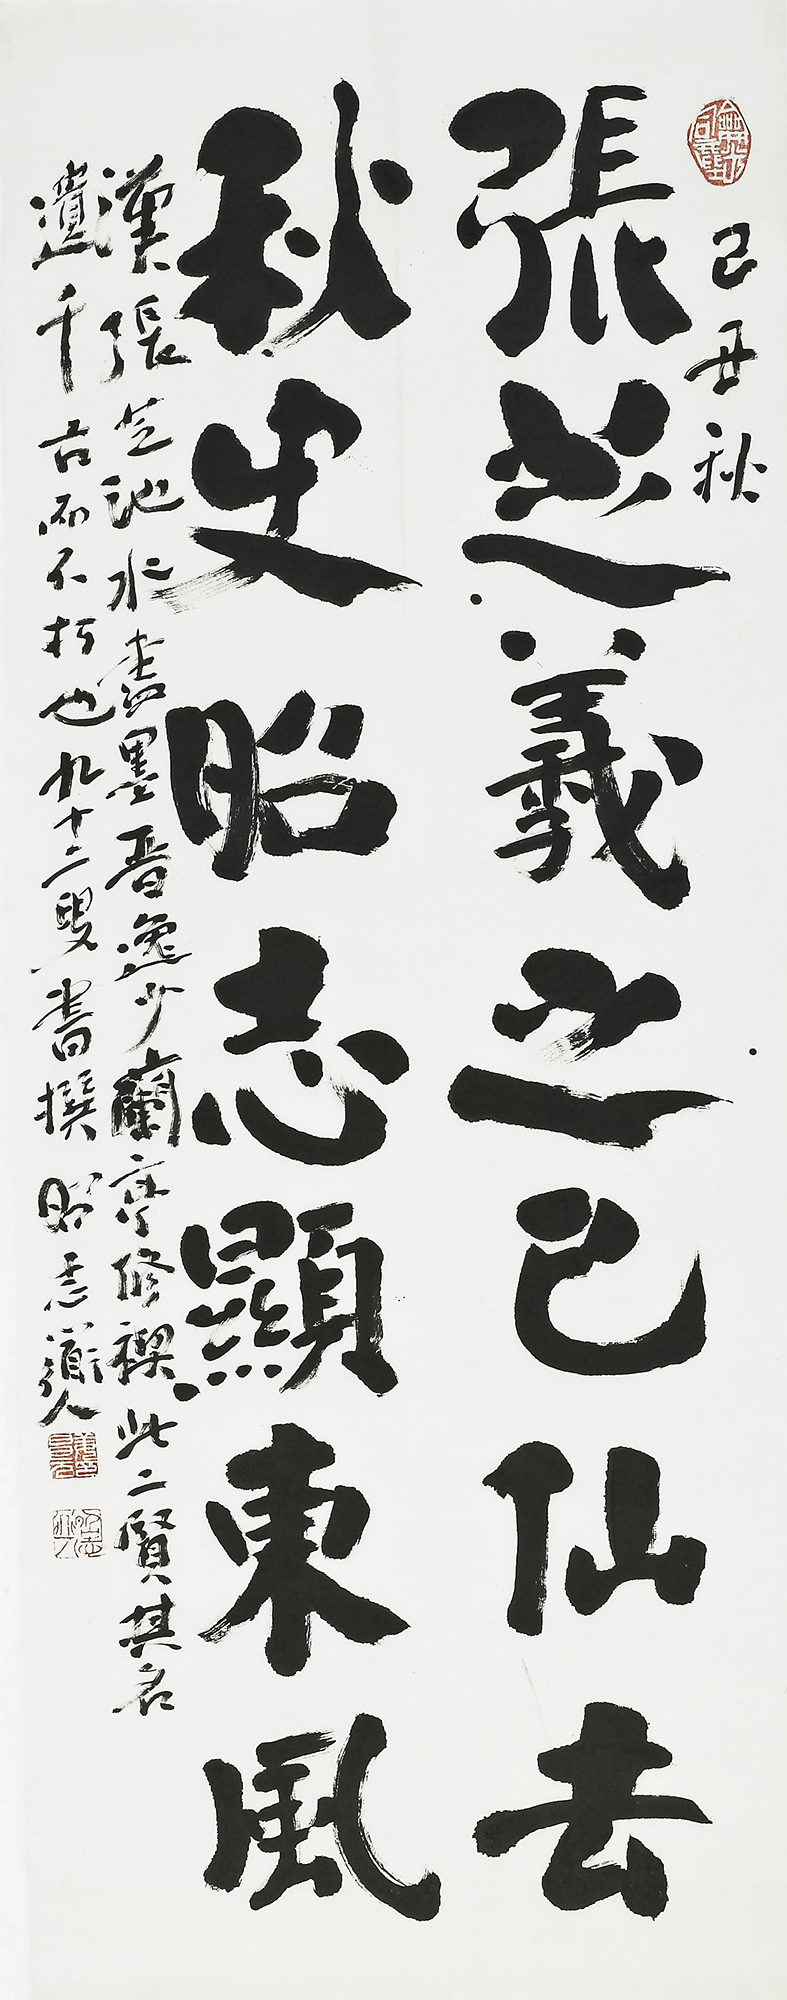 己丑秋
張芝羲之已仙去
秋史昭志顯東風
漢張芝池水盡墨晋逸少蘭亭修禊此二賢其名
遺千古而不朽也九十二叟書撰昭志道人